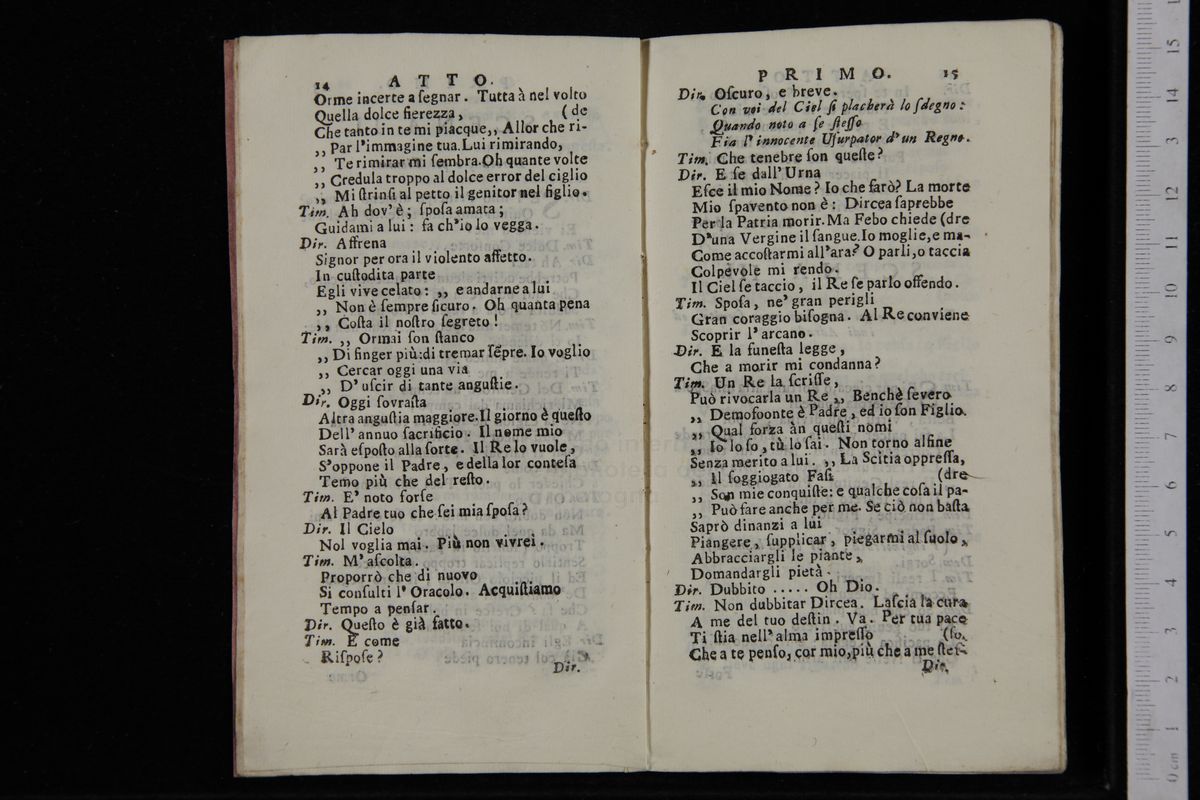 14 ATTO.
Orme incerte a ſegnar. Tutta à nel volto
Quella dolce fierezza, (de
Che tanto in te mi piacque,, Allor che ri-
,, Par l'immagine tua. Lui rimirando,
,, Te rimirar mi ſembra. Oh quante volte
,, Credula troppo al dolce error del ciglio
,, Mi ſtrinſi al petto il genitor nel figlio.
Tim. Ah dov'è; ſpoſa amata;
Guidami a lui: fa ch'io lo vegga.
Dir. Affrena
Signor per ora il violento affetto.
In cuſtodita parte
Egli vive celato: ,, e andarne a lui
,, Non è ſempre ſicuro. Oh quanta pena
,, Coſta il noſtro ſegreto!
Tim. ,, Ormai ſon ſtanco
,, Di finger più: di tremar ſẽpre. Io voglio
,, Cercar oggi una via
,, D'uſcir di tante anguſtie.
Dir. Oggi ſovraſta
Altra anguſtia maggiore. Il giorno è queſto
Dell'annuo ſacrificio. Il nome mio
Sarà eſpoſto alla ſorte. Il Re lo vuole,
S'oppone il Padre, e della lor conteſa
Temo più che del reſto.
Tim. E' noto forſe
Al Padre tuo che ſei mia ſpoſa?
Dir. Il Cielo
Nol voglia mai. Più non vivrei.
Tim. M'aſcolta.
Proporrò che di nuovo
Si conſulti l'Oracolo. Acquiſtiamo
Tempo a penſar.
Dir. Queſto è già fatto.
Tim. E come
Riſpoſe?
Dir.
PRIMO. 15
Dir. Oſcuro, e breve.
Con voi del Ciel ſi placherà lo ſdegno:
Quando noto a ſe ſteſſo
Fia l'innocente Uſurpator d'un Regno.
Tim. Che tenebre ſon queſte?
Dir. E ſe dall'Urna
Eſce il mio Nome? Io che farò? La morte
Mio ſpavento non è: Dircea ſaprebbe
Per la Patria morir. Ma Febo chiede (dre
D'una Vergine il ſangue. Io moglie, e ma-
Come accoſtarmi all'ara? O parli, o taccia
Colpevole mi rendo.
Il Ciel ſe taccio, il Re ſe parlo offendo.
Tim. Spoſa, ne' gran perigli
Gran coraggio biſogna. Al Re conviene
Scoprir l'arcano.
Dir. E la funeſta legge,
Che a morir mi condanna?
Tim. Un Re la ſcriſſe,
Può rivocarla un Re ,, Benchè ſevero
,, Demofoonte è Padre, ed io ſon Figlio.
,, Qual forza àn queſti nomi
,, Io lo ſo, tù lo ſai. Non torno alfine
Senza merito a lui. ,, La Scitia oppreſſa,
,, Il ſoggiogato Faſi (dre
,, Son mie conquiſte: e qualche coſa il pa-
,, Può fare anche per me. Se ciò non baſta
Saprò dinanzi a lui
Piangere, ſupplicar, piegarmi al ſuolo,
Abbracciargli le piante,
Domandargli pietà.
Dir. Dubbito ..... Oh Dio.
Tim. Non dubbitar Dircea. Laſcia la cura
A me del tuo deſtin. Va. Per tua pace
Ti ſtia nell'alma impreſſo (ſo.
Che a te penſo, cor mio, più che a me ſteſ-
Dir.